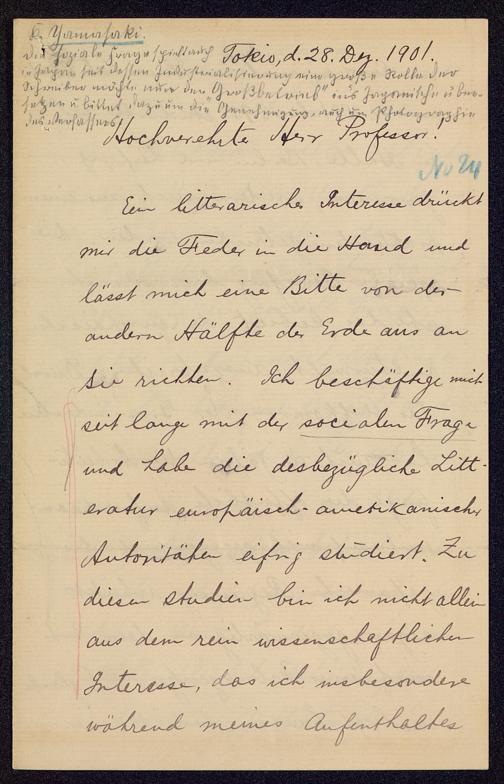 K. Yamasaki.
Die soziale Frage spielt auch
in Japan seit dessen Industrialisierung eine große Rolle. Der
Schreiber möchte nun den „Großbetrieb" ins Japanische über-
setzen u bittet dazu um die Genehmigung, auch um Photographie
des Verfassers
Tokio, d. 28. Dez. 1901.
Hochverehrter Herr Professor!
No 24
Ein litterarisches Interesse drückt
mir die Feder in die Hand und
lässt mich eine Bitte von der
andern Hälfte der Erde aus an
Sie richten. Ich beschäftige mich
seit lange mit der socialen Frage
und habe die desbezügliche Litt-
eratur europäisch-amerikanischer
Autoritäten eifrig studiert. Zu
diesen Studien bin ich nicht allein
aus dem rein wissenschaftlichen
Interesse, das ich insbesondere
während meines Aufenthaltes